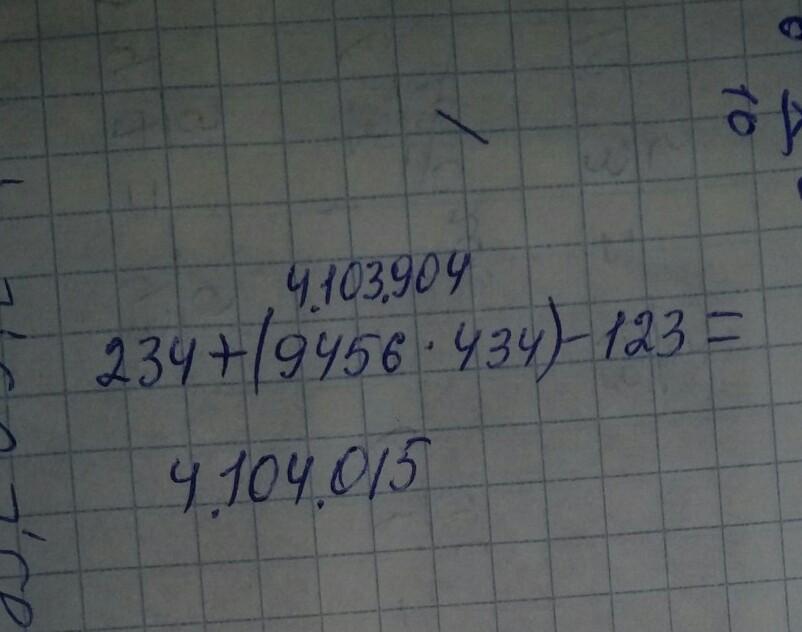 4.103.904
234+(9456·434)-123=
4.104.015
10